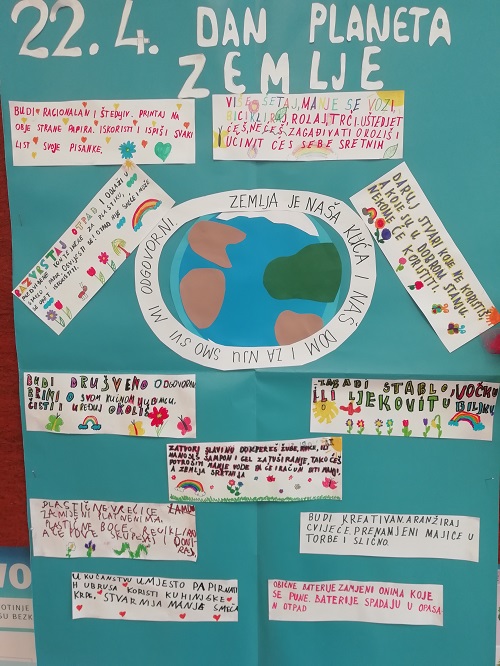 22. 4. DAN PLANETA
ZEMLJE
BUDI RACIONALAN I ŠTEDLJIV. PRINTAJ NA
OBJE STRANE PAPIRA. ISKORISTI I ISPIŠI SVAKI
LIST SVOJE PISANKE.
VIŠE ŠETAJ, MANJE SE VOZI,
BICIKLIRAJ, ROLAJ, TRČI. UŠTEDJET
ĆEŠ, NEĆEŠ ZAGAĐIVATI OKOLIŠ I
UČINIT ĆEŠ SEBE SRETNIM
RAZVRSTAJ OTPAD I ODLAŽI U
PREDVIĐENE KONTEJNERE ZA PLASTIKU,
ZEMLJA JE NAŠA KUĆA I NAŠ DOM I ZA NJU SMO SVI MI ODGOVORNI.
DARUJ STVARI KOJE NE KORISTIŠ
A KOJE SU U DOBROM STANJU.
NEKOME ĆE KORISTITI!
BUDI DRUŠTVENO ODGOVORAN
BRINI O SVOM KUĆNOM LJUBIMCU.
ČISTI I UREĐUJ OKOLIŠ
ZASADI STABLO, VOĆKU
ILI LJEKOVITU BILJKU
ZATVORI SLAVINU DOK PEREŠ ZUBE, RUKE, ILI
NANOSIŠ ŠAMPON I GEL ZA TUŠIRANJE, TAKO ĆEŠ
POTROŠITI MANJE VODE PA ĆE I RAČUN BITI MANJI,
A ZEMLJA SRETNIJA
PLASTIČNE VREĆICE
ZAMIJENI PLATNENIMA.
PLASTIČNE BOCE RECIKLIRAJ
BUDI KREATIVAN. ARANŽIRAJ
CVIJEĆE. PRENAMJENI MAJICE U
TORBE I SLIČNO.
U KUĆANSTVU UMJESTO PAPIRNATIH
UBRUSA KORISTI KUHINJSKE
KRPE. STVARAJ MANJE SMEĆA
OBIČNE BATERIJE ZAMJENI ONIMA KOJE
SE PUNE. BATERIJE SPADAJU U OPASAN
OTPAD